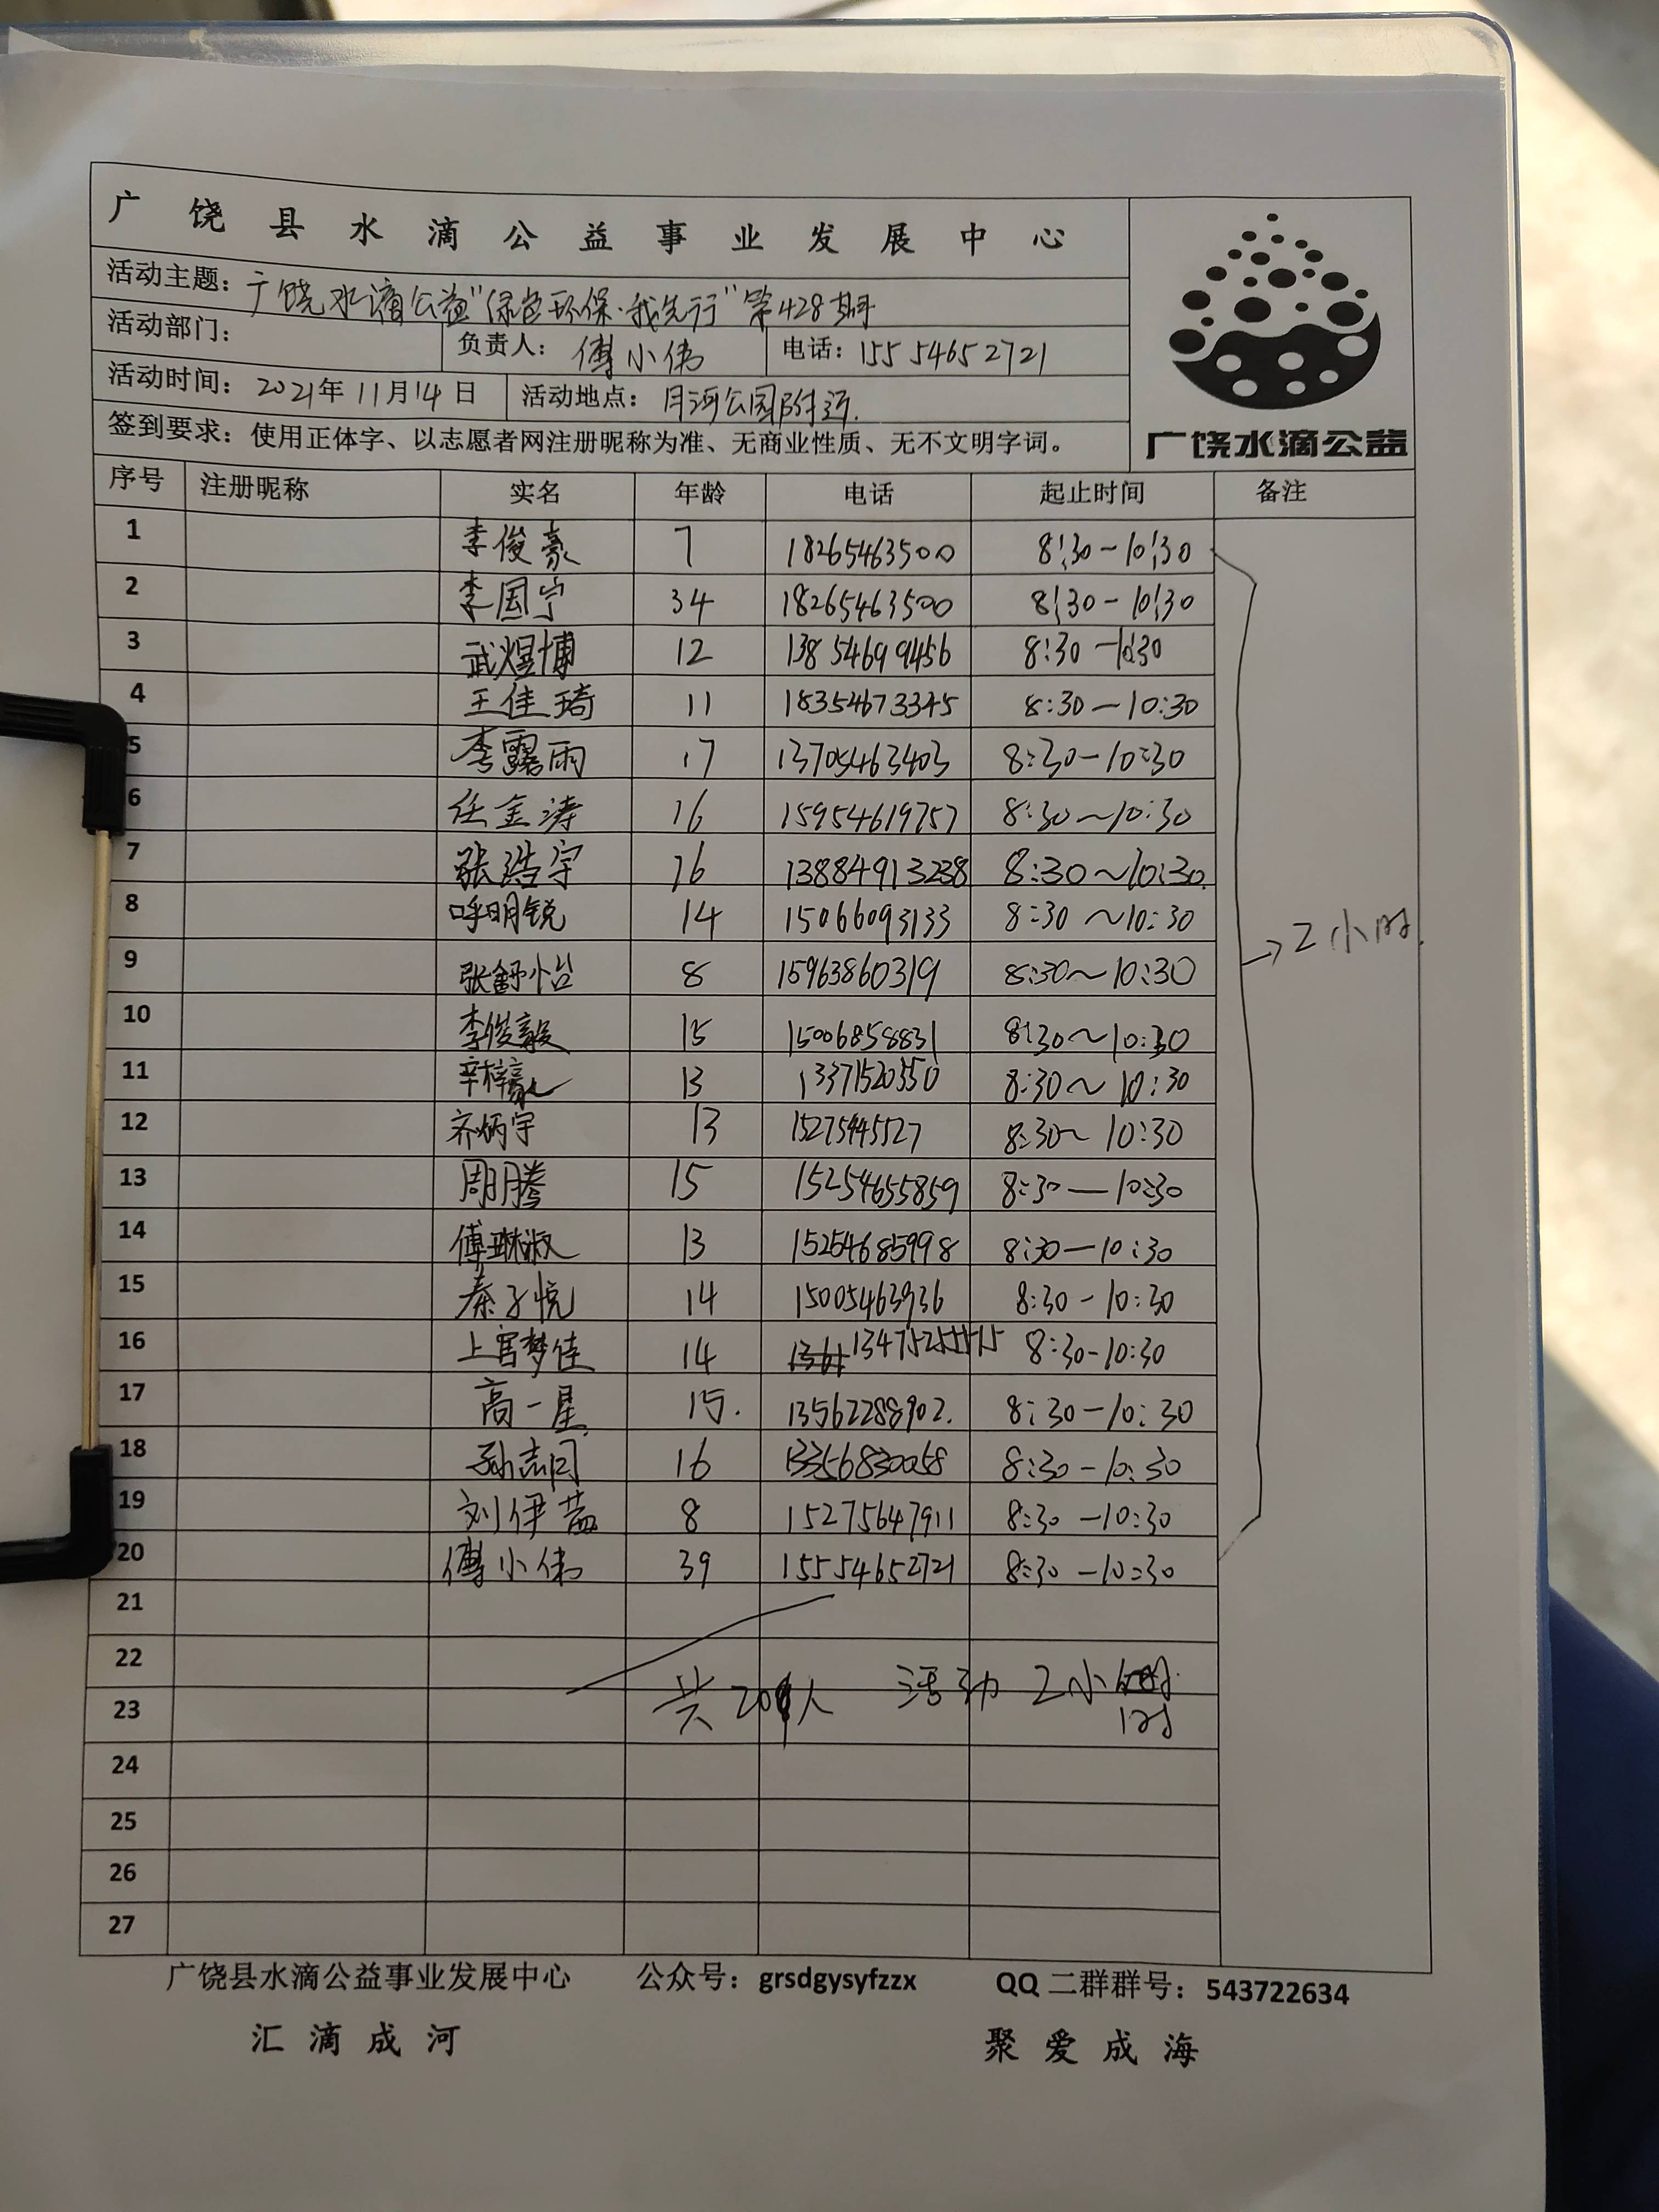 广饶县水滴公益事业发展中心
活动主题：广饶水滴公益"绿色环保·我先行"第428期
活动部门： 负责人：傅小伟 电话：15554652721
活动时间：2021年11月14日 活动地点：月河公园附近.
签到要求：使用正体字、以志愿者网注册昵称为准、无商业性质、无不文明字词。
广饶水滴公益
序号 注册昵称 实名 年龄 电话 起止时间 备注
1 李俊豪 7 18265463500 8:30-10:30
2 李国宁 34 18265463500 8:30-10:30
3 武煜博 12 13854699456 8:30-10:30
4 王佳琦 11 18354673345 8:30-10:30
5 李露雨 17 13705463403 8:30-10:30
6 任金涛 16 15954619757 8:30~10:30
7 张浩宇 16 13884913238 8:30~10:30.
8 呼明锐 14 15066093133 8:30~10:30
→2小时.
9 张舒怡 8 15963860319 8:30~10:30
10 李俊毅 15 15006858831 8:30~10:30
11 辛梓豪 13 13371520350 8:30~10:30
12 齐炳宇 13 8:30~10:30
13 周腾 15 15254655859 8:30-10:30
14 傅琳淑 13 15254685998 8:30-10:30
15 秦子悦 14 15005463936 8:30-10:30
16 上官梦佳 14 8:30-10:30
17 高一星 15. 13562288902. 8:30-10:30
18 孙志同 16 13356830058 8:30-10:30
19 刘伊菡 8 15275647911 8:30-10:30
20 傅小伟 39 15554652721 8:30-10:30
21
22
共20人 活动2小时
23
24
25
26
27
广饶县水滴公益事业发展中心 公众号：grsdgysyfzzx QQ二群群号：543722634
汇滴成河 聚爱成海